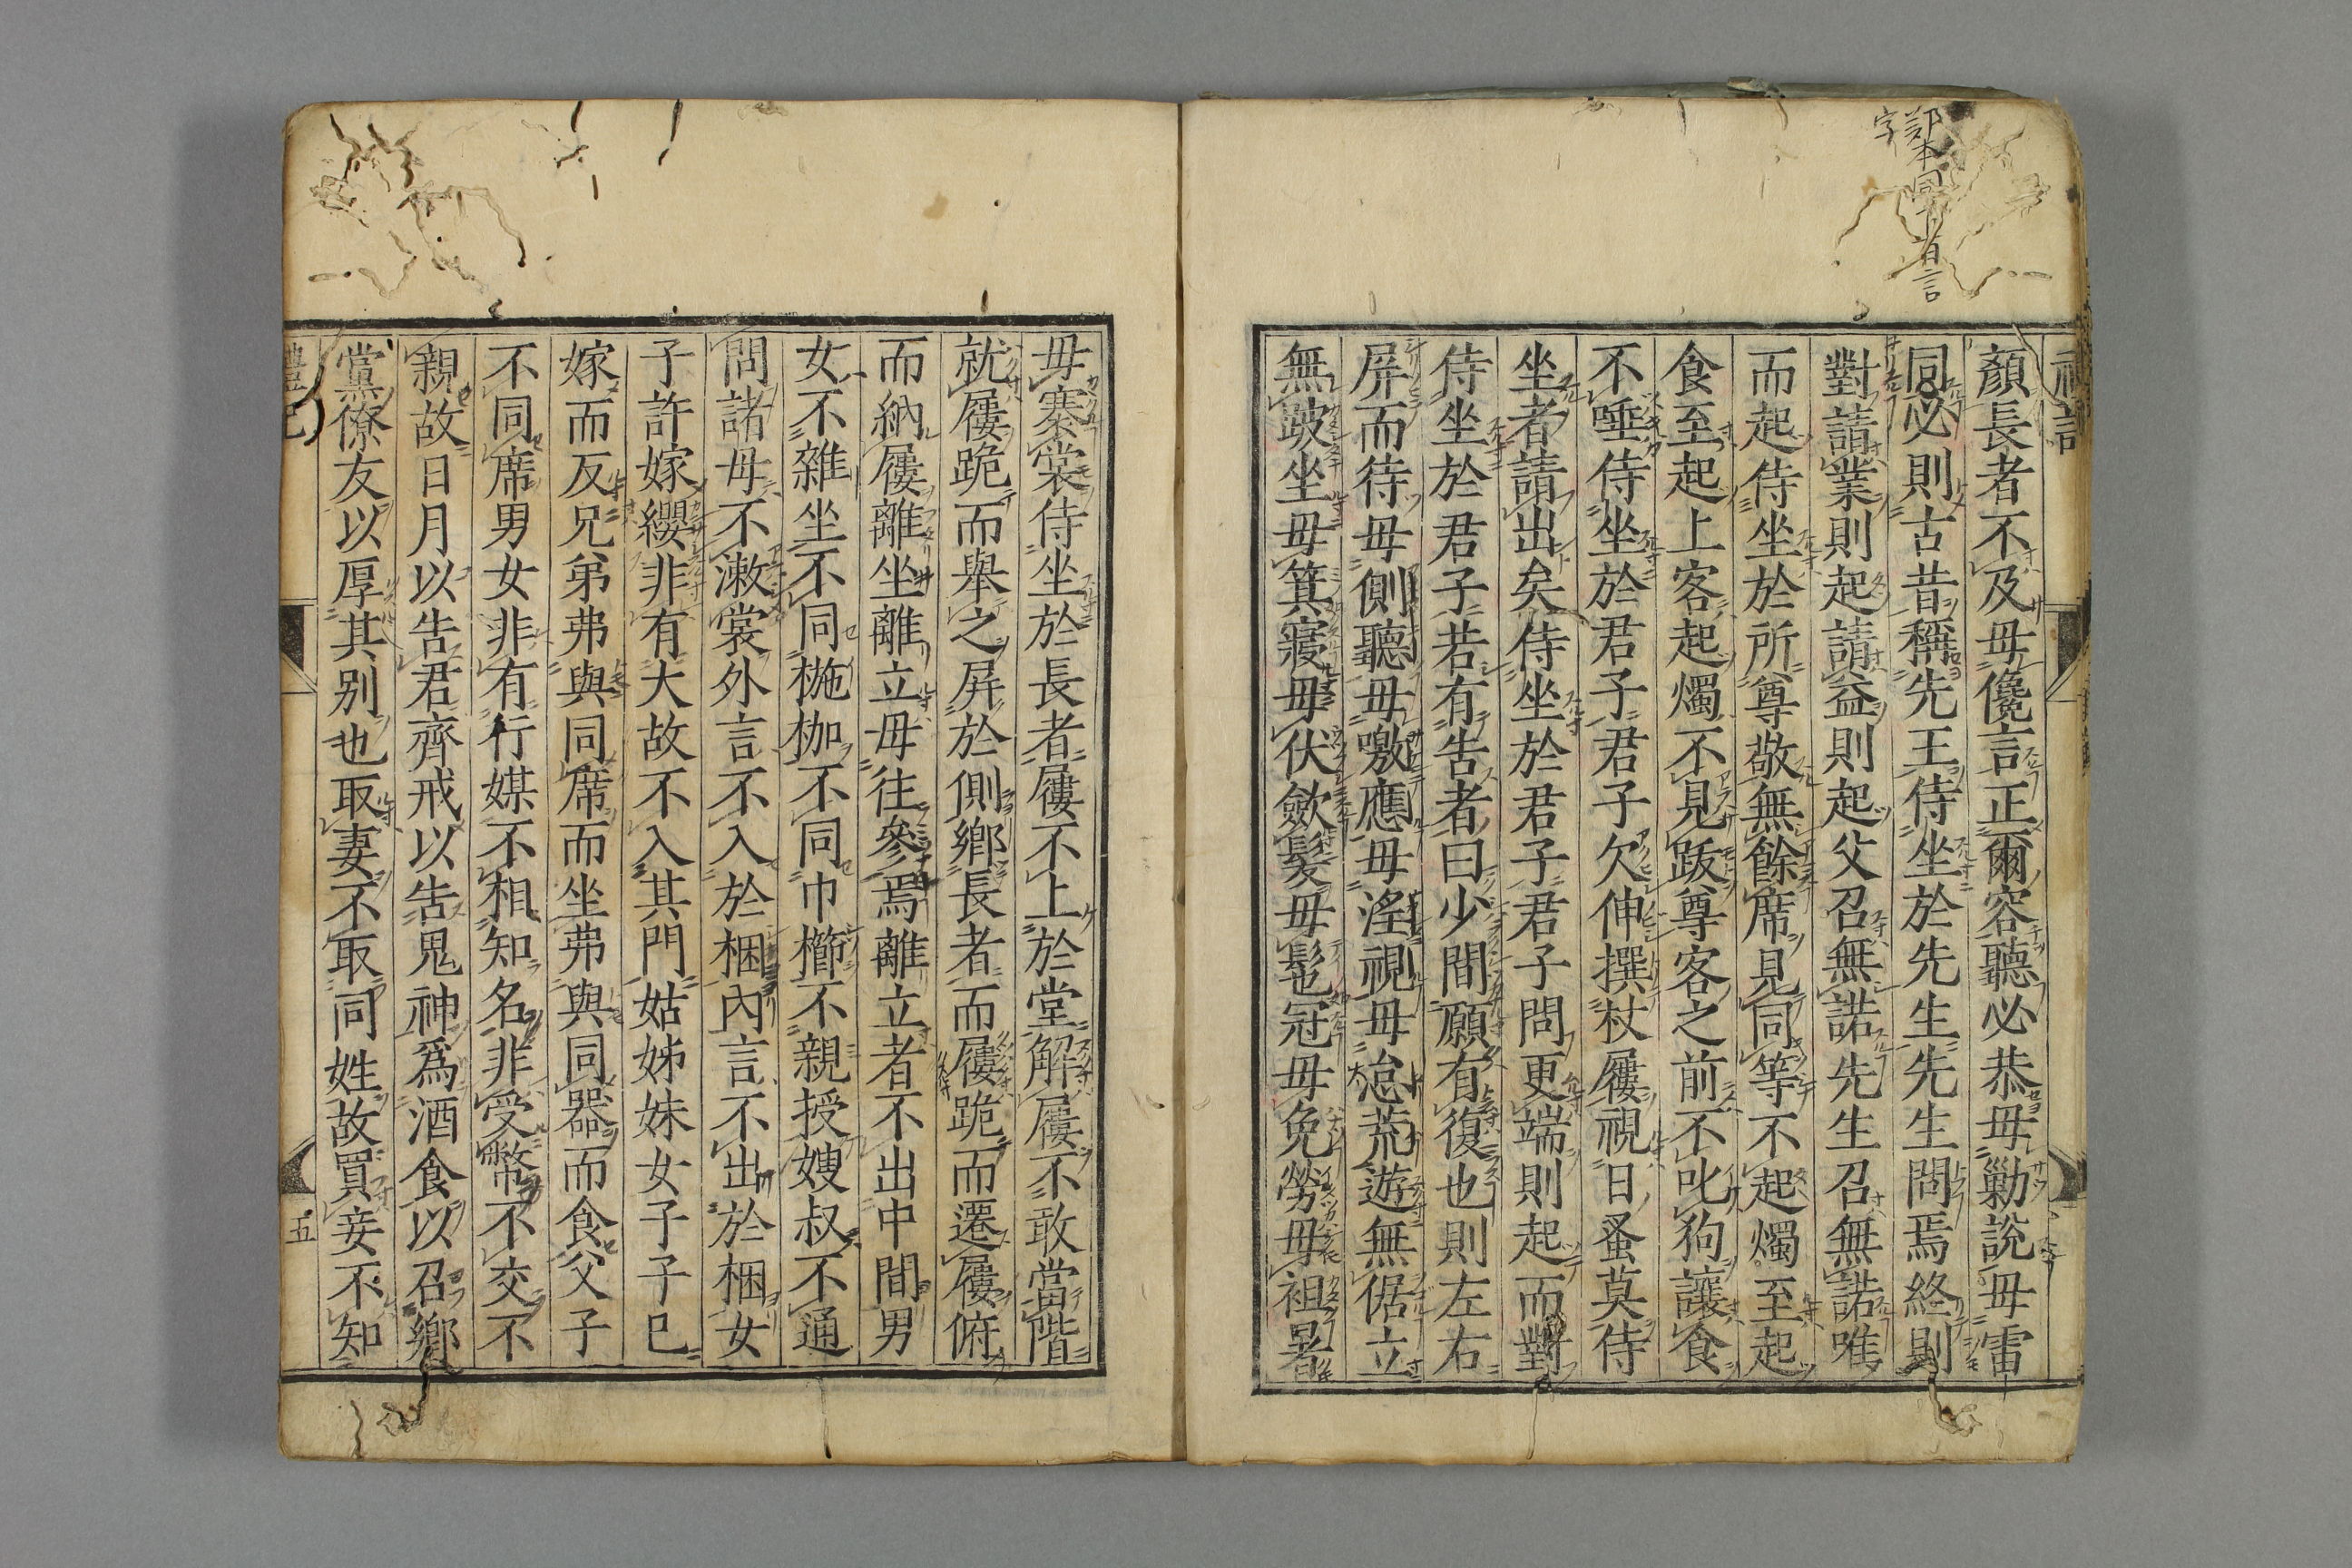 鄭本同下有言
字
禮記
顏長者不及毋儳言正爾容聽必恭毋勦說毋雷
同必則古昔稱先王侍坐於先生先生問焉終則
對請業則起請益則起父召無諾先生召無諾唯
而起侍坐於所尊敬無餘席見同等不起燭至起
食至起上客起燭不見跋尊客之前不叱狗讓食
不唾侍坐於君子君子欠伸撰杖屨視日蚤莫侍
坐者請出矣侍坐於君子君子問更端則起而對
侍坐於君子若有告者曰少間願有復也則左右
屏而待毋側聽毋噭應毋淫視毋怠荒遊無倨立
無跛坐毋箕寢毋伏斂髮毋髢冠毋免勞毋袒暑
毋褰裳侍坐於長者屨不上於堂解屨不敢當階
就屨跪而舉之屏於側鄉長者而屨跪而遷屨俯
而納屨離坐離立毋往參焉離立者不出中間男
女不雜坐不同椸枷不同巾櫛不親授嫂叔不通
問諸母不漱裳外言不入於梱內言不出於梱女
子許嫁纓非有大故不入其門姑姊妹女子子已
嫁而反兄弟弗與同席而坐弗與同器而食父子
不同席男女非有行媒不相知名非受幣不交不
親故日月以告君齊戒以告鬼神爲酒食以召鄉
黨僚友以厚其别也取妻不取同姓故買妾不知
禮記
五